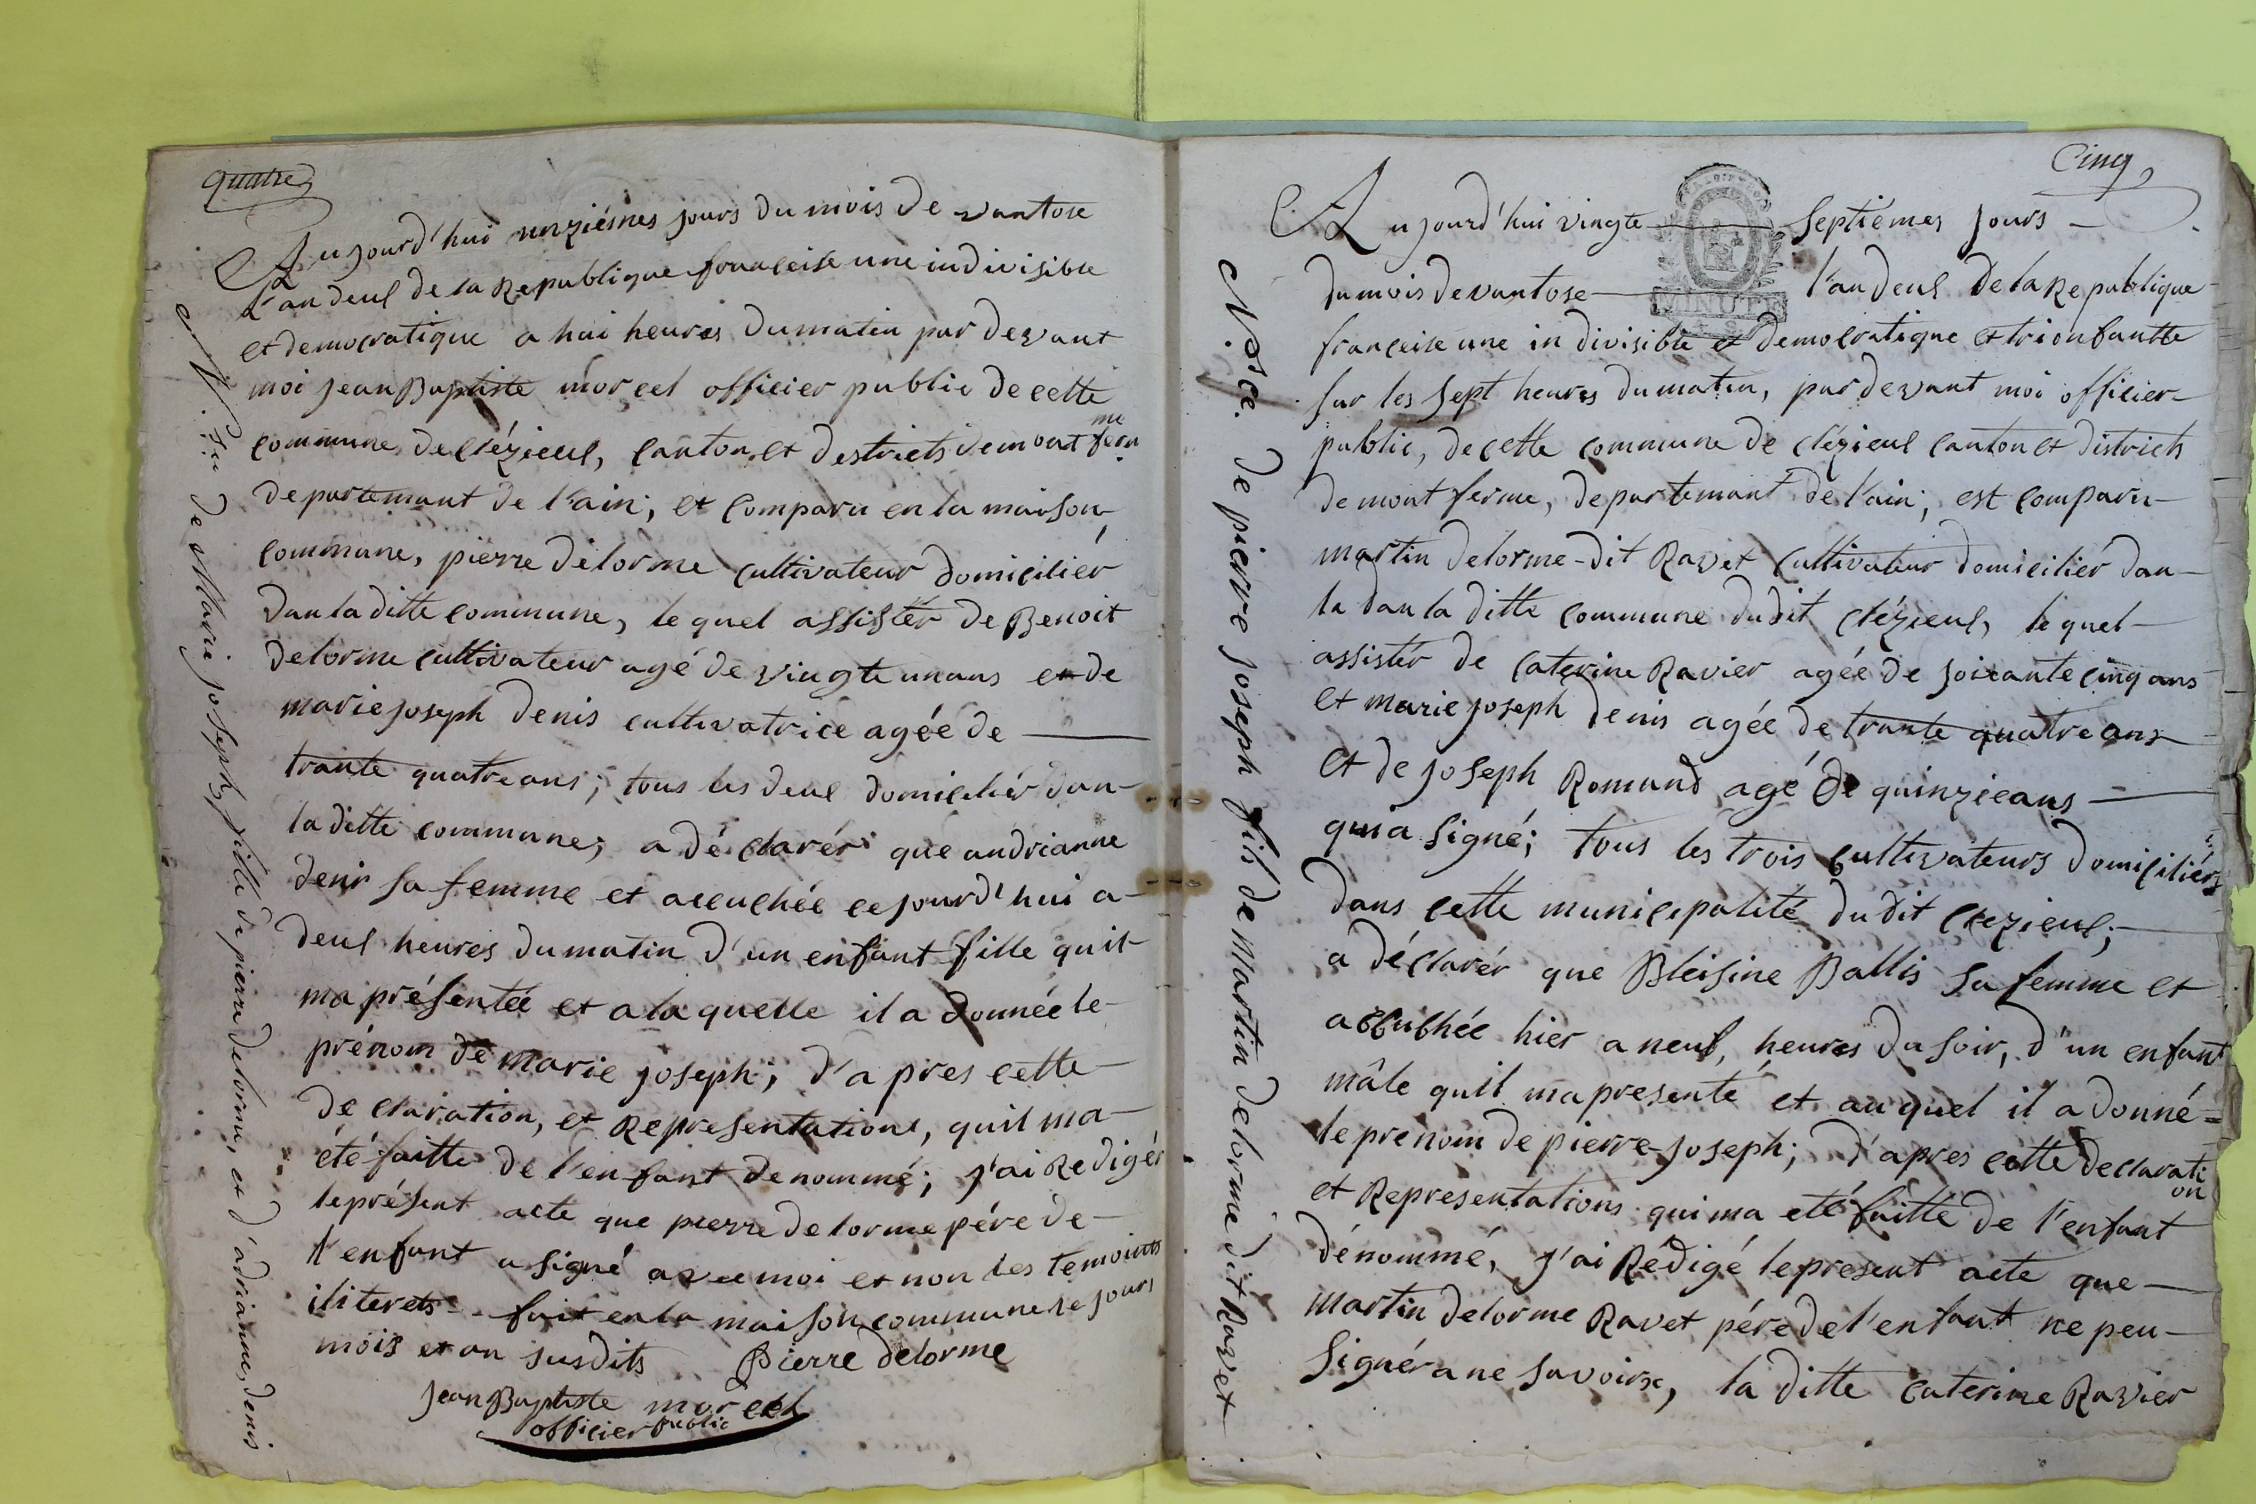 quatre
Aujourd'hui unziémes jours du mois de vantose
L'an deul de la Republique franceise une indivisible
et democratique a hui heures du matin par devant
moi jean Baptiste morcel officier public de cette
commune de clézieul, canton et districts de mont ferme
departemant de l'ain; et comparu en la maison
commune, pierre delorme cultivateur domicilier
dan la ditte commune, le quel assister de Benoit
delorme cultivateur agé de vingte un ans et de
marie joseph denis cultivatrice agée de
trante quatre ans; tous les deul domicilier dan
la ditte commune; a déclarér que andrianne
denis sa femme et accuchée cejourd'hui a
deul heures du matin d'un enfant fille quil
ma présentée et a la quelle il a donnée le
prénom de marie joseph; d'apres cette
declaration, et Representations, quil ma
été faitte de l'enfant denommé; j'ai Redigér
le présent acte que pierre delorme pére de
l'enfant a signé avec moi et non les temoints
iliterets fait en la maison commune le jours
mois et an susdits Pierre delorme
jean Baptiste morcel
officier public
N. du de Marie joseph fille de pierre delorme, et d'adrianne denis
Cinq
Aujourd'hui vingte septiémes jours
du mois de vantose l'an deul de la Republique
MINUTE
franceise une in divisible et democratique et trionfantte
sur les sept heures du matin, par devant moi officier
public, de cette commune de clézieul canton et districts
de mont ferme, departemant de l'ain; est comparu
martin delorme dit Ravet cultivateur domicilier dan
la dan la ditte commune dudit clézieul, le quel
assistér de caterine Ravier agée de soixante cinq ans
et marie joseph denis agée de trante quatre ans
et de joseph Romand agé de quinzieans
qui a signé; tous les trois cultivateurs domiciliérs
dans cette municipalité du dit clezieul;
a déclarér que Bleisine Ballis sa femme et
accuchée hier a neuf heures du soir, d'un enfant
mâle quil ma presenté et au quel il a donné
le prenom de pierre-joseph; d'apres cette declaration
et Representations qui ma eté faitte de l'enfant
dénommé, j'ai Rédigé le present acte que
martin delorme Ravet pére de l'enfant ne peu
signér a ne savoire, la ditte caterine Ravier
N.sce. de pierre joseph fils de Martin delorme dit Ravet